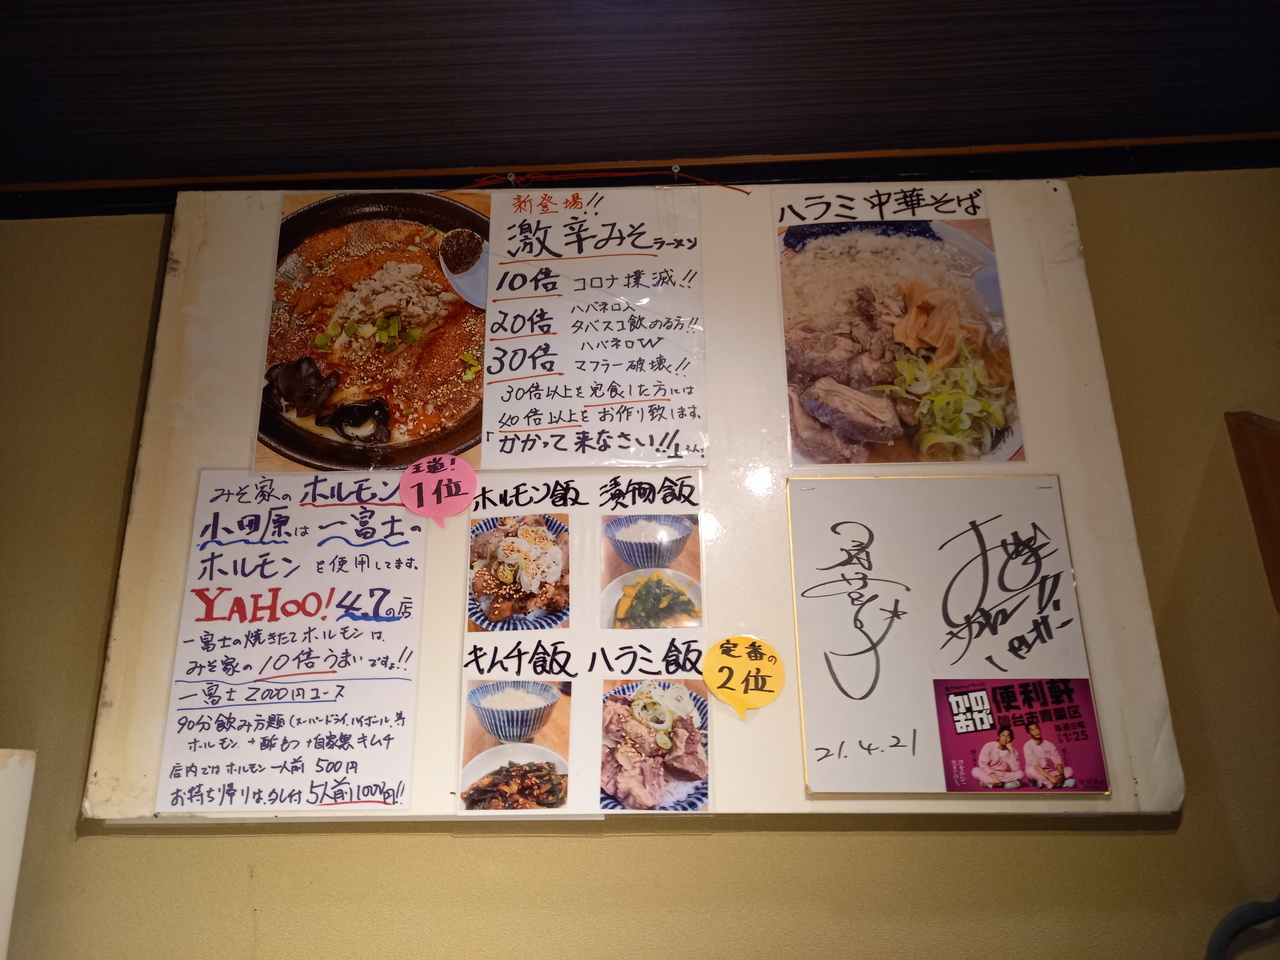 新登場!!
激辛みそラーメン
10倍 コロナ撲滅!!
ハバネロ入
20倍 タバスコ飲める方!!
ハバネロW
30倍 マフラー破壊!!
30倍以上を完食した方には
40倍以上をお作り致します。
「かかって来なさい!!」
ハラミ中華そば
みそ家のホルモン
小田原は一富士の
ホルモンを使用してます。
YAHOO! 4.7の店
一富士の焼きたてホルモンは、
みそ家の10倍うまいですよ!!
一富士2000円コース
90分飲み方題(スーパードライ、ハイボール、等
ホルモン+酢もつ+自家製キムチ
店内ではホルモン一人前500円
お持ち帰りは、タレ付5人前1000円!!
王道!
1位
ホルモン飯
漬物飯
キムチ飯
ハラミ飯
定番の
2位
21.4.21
かのおが
便利軒
仙台市青葉区
1:25